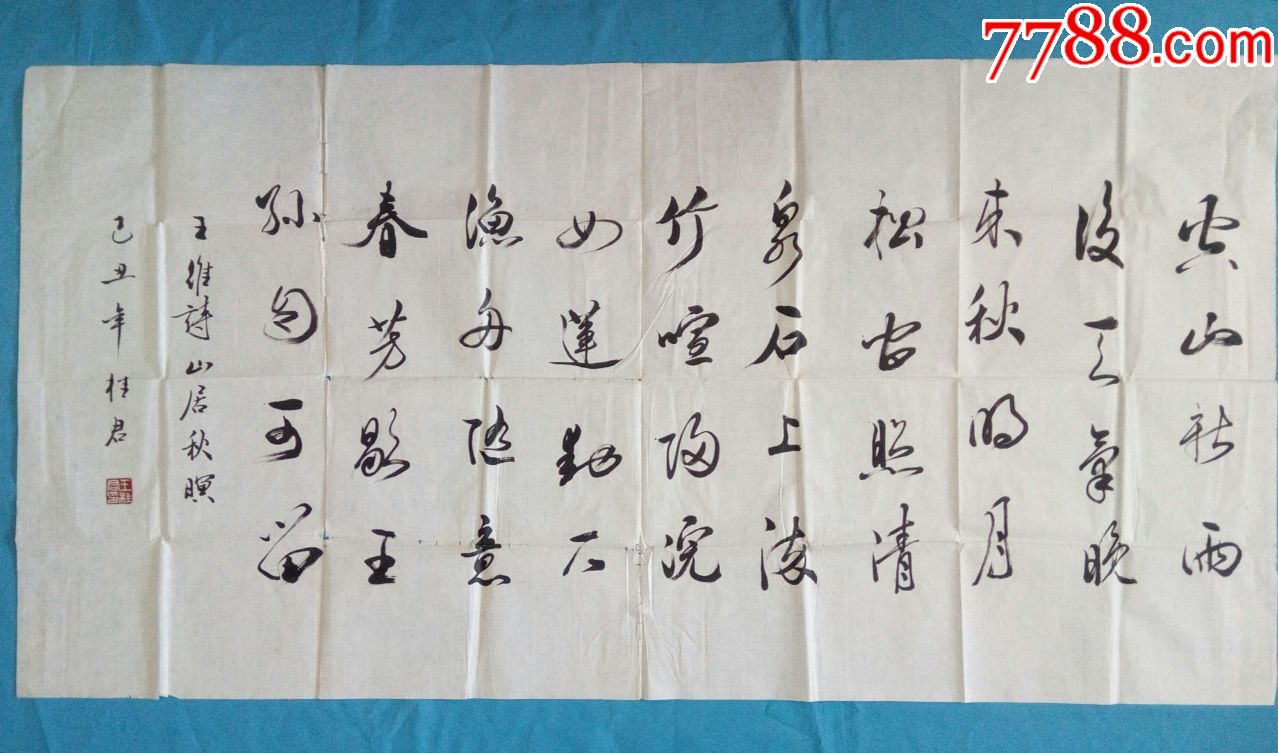 7788.com
空山新雨
後天氣晚
来秋明月
松间照清
泉石上流
竹喧归浣
女蓮動下
漁舟随意
春芳歇王
孫自可留
王維詩山居秋暝
己丑年 桂君
王桂君印